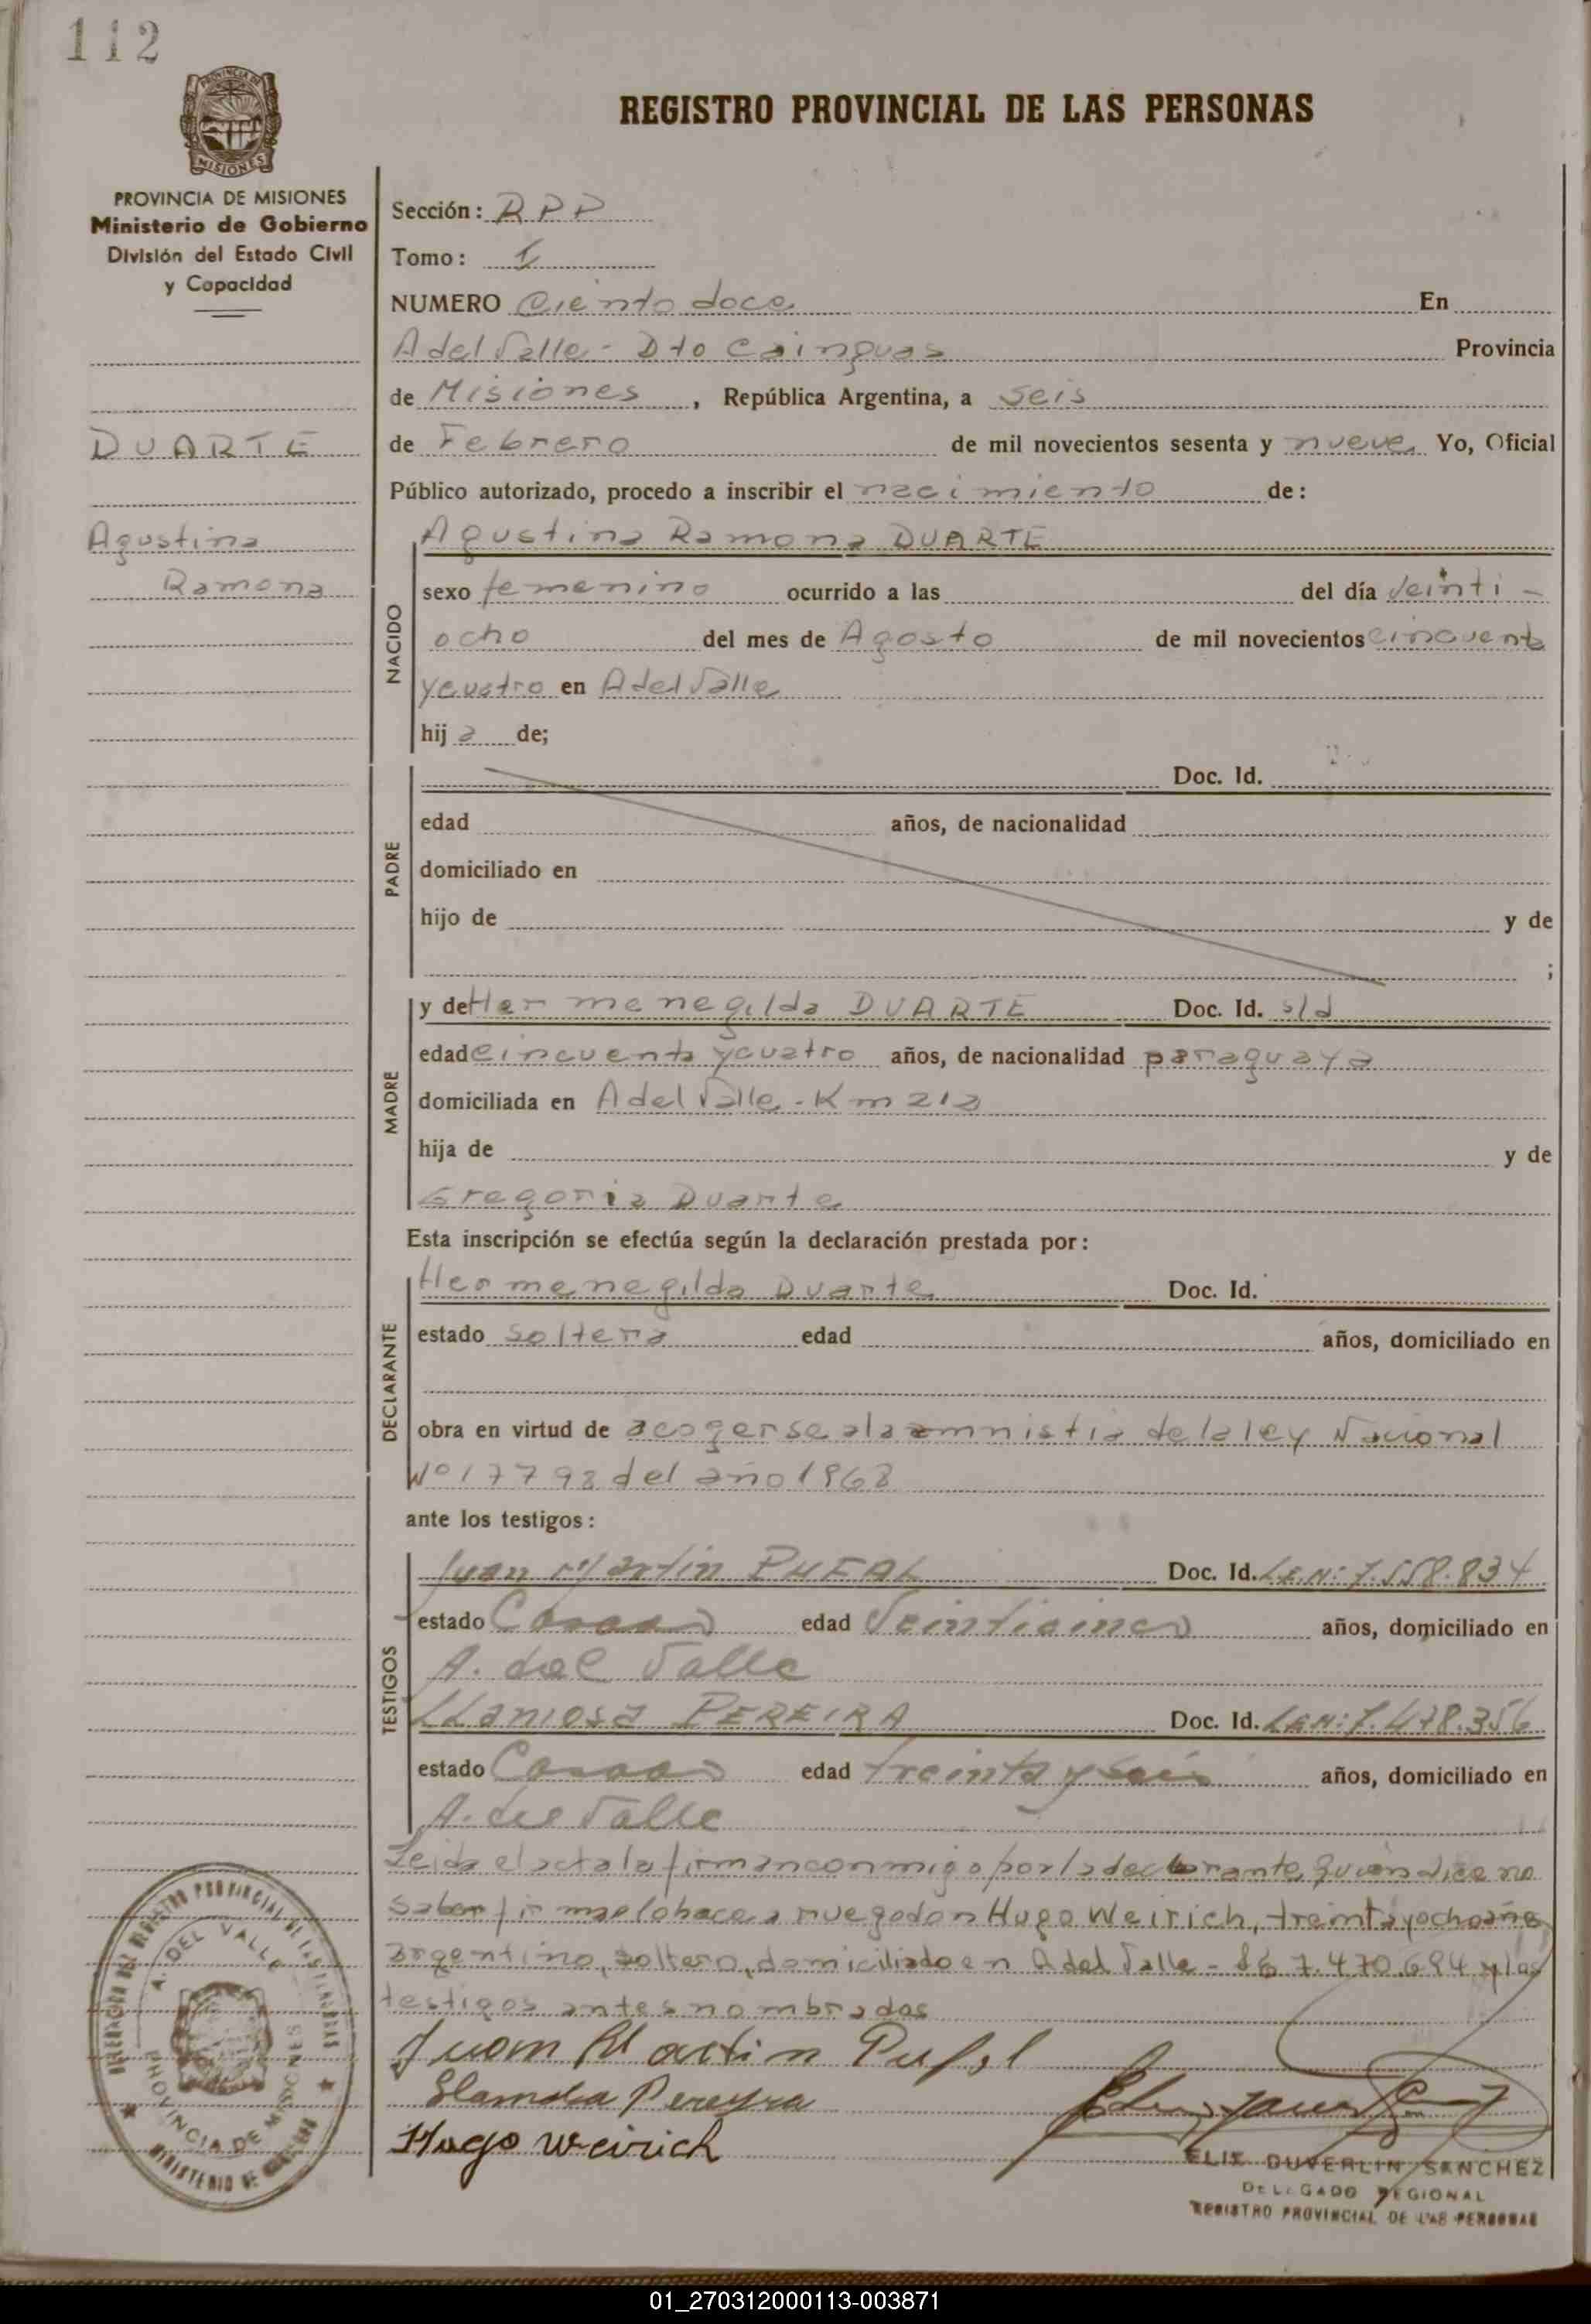 112
PROVINCIA DE
MISIONES
REGISTRO PROVINCIAL DE LAS PERSONAS
PROVINCIA DE MISIONES
Ministerio de Gobierno
División del Estado Civil
y Capacidad
DUARTE
Agustina
Ramona
Sección: RPP
Tomo: 1
NUMERO Ciento doce En
A del Valle - Dto Cainguas Provincia
de Misiones, República Argentina, a seis
de Febrero de mil novecientos sesenta y nueve Yo, Oficial
Público autorizado, procedo a inscribir el nacimiento de:
NACIDO
Agustina Ramona DUARTE
sexo femenino ocurrido a las del día veinti-
ocho del mes de Agosto de mil novecientos cincuenta
y cuatro en A del Valle
hija de;
PADRE
Doc. Id.
edad años, de nacionalidad
domiciliado en
hijo de y de
;
MADRE
y de Hermenegilda DUARTE Doc. Id. s/d
edad cincuenta y cuatro años, de nacionalidad paraguaya
domiciliada en A del Valle - Km 212
hija de y de
Gregoria Duarte
Esta inscripción se efectúa según la declaración prestada por:
DECLARANTE
Hermenegilda Duarte Doc. Id.
estado soltera edad años, domiciliado en
obra en virtud de acogerse a la amnistia de la ley Nacional
Nº 17793 del año 1968
ante los testigos:
TESTIGOS
Juan Martin Doc. Id. L.E.Nº: 7.558.834
estado Casado edad Veinticinco años, domiciliado en
A. del Valle
Llamosa PEREIRA Doc. Id. L.E.Nº: 7.478.356
estado Casado edad treinta y seis años, domiciliado en
A. del Valle
Leida el acta la firman conmigo por la declarante, quien dice no
saber firmar lo hace a ruego don Hugo Weirich, treinta y ocho años
argentino, soltero, domiciliado en A del Valle - 7.470.694 y los
testigos antes nombrados
Juan Martin
Llamosa Pereyra
Hugo Weirich
ELIX DUVERLIN SANCHEZ
DELEGADO REGIONAL
REGISTRO PROVINCIAL DE LAS PERSONAS
DIRECCION DEL REGISTRO PROVINCIAL DE LAS PERSONAS
A. DEL VALLE
PROVINCIA DE MISIONES
MINISTERIO DE GOBIERNO
01_270312000113-003871